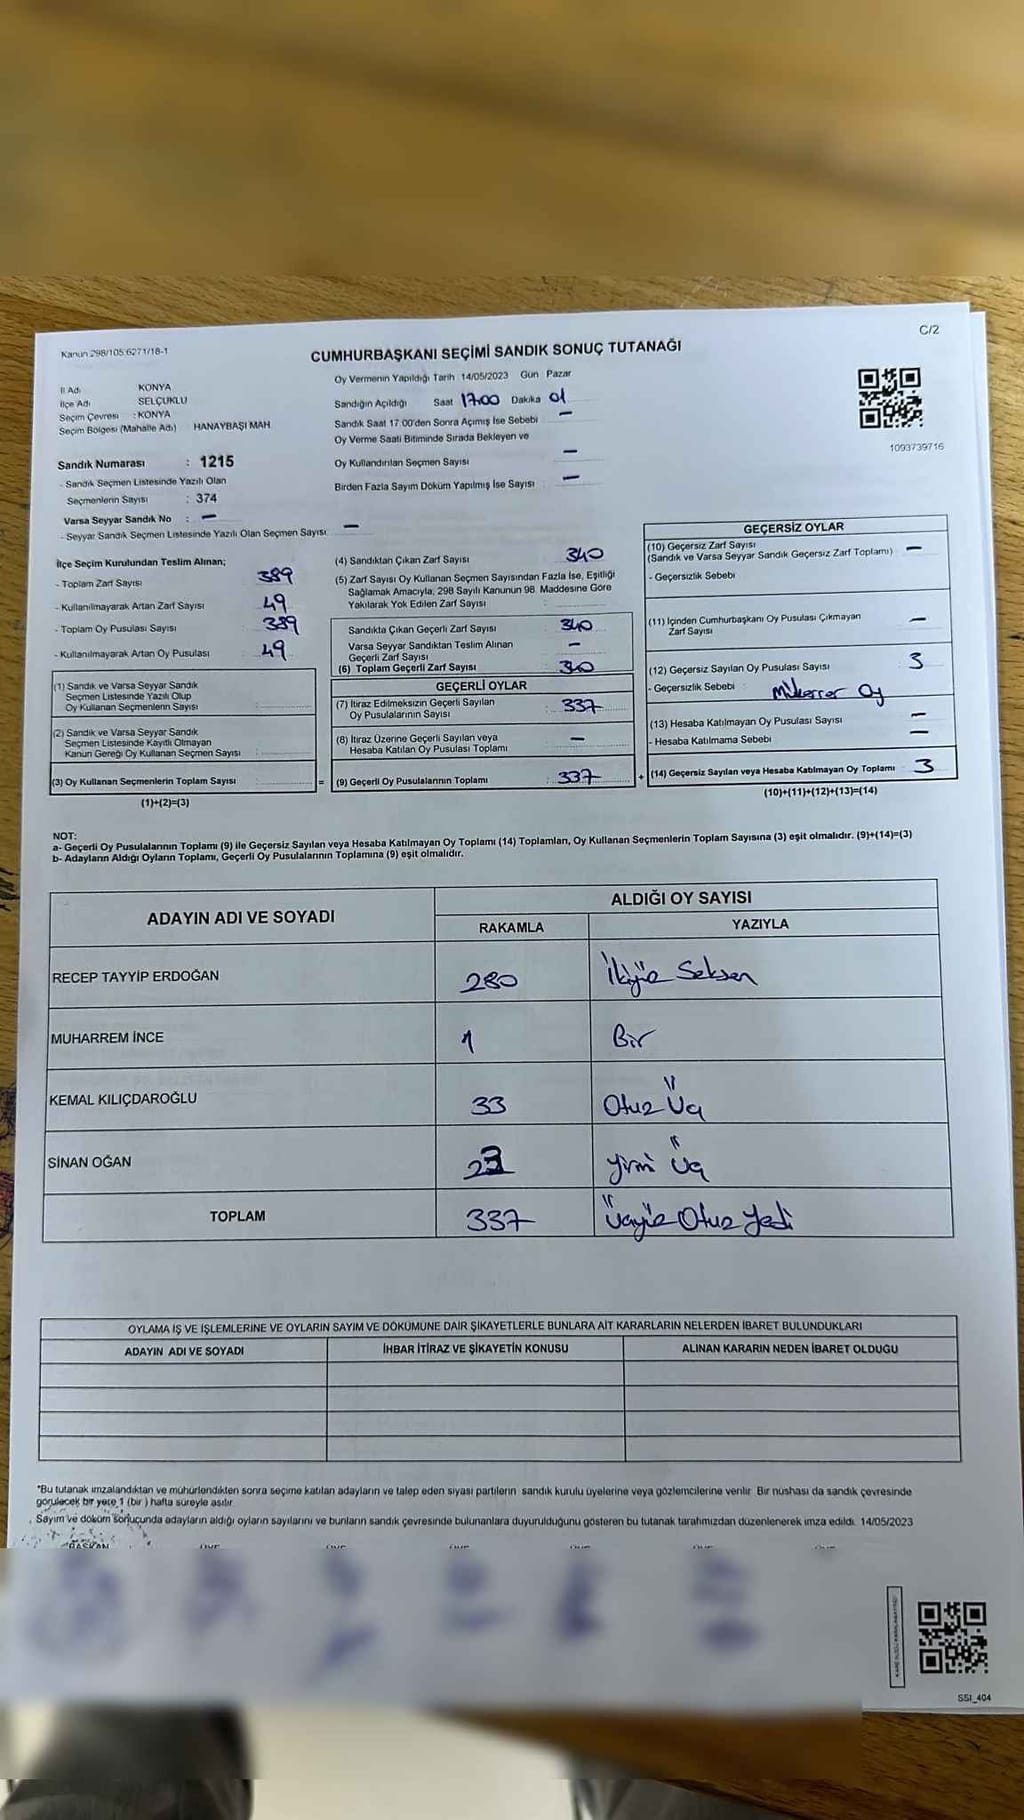 C/2
Kanun 298/105 6271/18-1
CUMHURBAŞKANI SEÇİMİ SANDIK SONUÇ TUTANAĞI
İl Adı KONYA
İlçe Adı SELÇUKLU
Seçim Çevresi : KONYA
Seçim Bölgesi (Mahalle Adı) HANAYBAŞI MAH
Sandık Numarası : 1215
- Sandık Seçmen Listesinde Yazılı Olan
Seçmenlerin Sayısı : 374
Varsa Seyyar Sandık No : -
- Seyyar Sandık Seçmen Listesinde Yazılı Olan Seçmen Sayısı -
Oy Vermenin Yapıldığı Tarih 14/05/2023 Gün Pazar
Sandığın Açıldığı Saat 17:00 Dakika 01
Sandık Saat 17:00'den Sonra Açımış İse Sebebi -
Oy Verme Saati Bitiminde Sırada Bekleyen ve
Oy Kullandırılan Seçmen Sayısı -
Birden Fazla Sayım Döküm Yapılmış İse Sayısı -
1093739716
İlçe Seçim Kurulundan Teslim Alınan;
- Toplam Zarf Sayısı 389
- Kullanılmayarak Artan Zarf Sayısı 49
- Toplam Oy Pusulası Sayısı 389
- Kullanılmayarak Artan Oy Pusulası 49
(1) Sandık ve Varsa Seyyar Sandık
Seçmen Listesinde Yazılı Olup
Oy Kullanan Seçmenlerin Sayısı
(2) Sandık ve Varsa Seyyar Sandık
Seçmen Listesinde Kayıtlı Olmayan
Kanun Gereği Oy Kullanan Seçmen Sayısı
(3) Oy Kullanan Seçmenlerin Toplam Sayısı
(1)+(2)=(3)
=
(4) Sandıktan Çıkan Zarf Sayısı 340
(5) Zarf Sayısı Oy Kullanan Seçmen Sayısından Fazla İse, Eşitliği
Sağlamak Amacıyla, 298 Sayılı Kanunun 98. Maddesine Göre
Yakılarak Yok Edilen Zarf Sayısı
Sandıkta Çıkan Geçerli Zarf Sayısı 340
Varsa Seyyar Sandıktan Teslim Alınan
Geçerli Zarf Sayısı -
(6) Toplam Geçerli Zarf Sayısı 340
GEÇERLİ OYLAR
(7) İtiraz Edilmeksizin Geçerli Sayılan
Oy Pusulalarının Sayısı 337
(8) İtiraz Üzerine Geçerli Sayılan veya
Hesaba Katılan Oy Pusulası Toplamı -
(9) Geçerli Oy Pusulalarının Toplamı : 337
+
GEÇERSİZ OYLAR
(10) Geçersiz Zarf Sayısı
(Sandık ve Varsa Seyyar Sandık Geçersiz Zarf Toplamı) -
- Geçersizlik Sebebi
(11) İçinden Cumhurbaşkanı Oy Pusulası Çıkmayan
Zarf Sayısı -
(12) Geçersiz Sayılan Oy Pusulası Sayısı 3
- Geçersizlik Sebebi Mükerrer Oy
(13) Hesaba Katılmayan Oy Pusulası Sayısı -
- Hesaba Katılmama Sebebi -
(14) Geçersiz Sayılan veya Hesaba Katılmayan Oy Toplamı 3
(10)+(11)+(12)+(13)=(14)
NOT:
a- Geçerli Oy Pusulalarının Toplamı (9) ile Geçersiz Sayılan veya Hesaba Katılmayan Oy Toplamı (14) Toplamları, Oy Kullanan Seçmenlerin Toplam Sayısına (3) eşit olmalıdır. (9)+(14)=(3)
b- Adayların Aldığı Oyların Toplamı, Geçerli Oy Pusulalarının Toplamına (9) eşit olmalıdır.
ADAYIN ADI VE SOYADI ALDIĞI OY SAYISI
RAKAMLA YAZIYLA
RECEP TAYYİP ERDOĞAN 280 İkiyüz Seksen
MUHARREM İNCE 1 Bir
KEMAL KILIÇDAROĞLU 33 Otuz Üç
SİNAN OĞAN 23 yirmi Üç
TOPLAM 337 Üçyüz Otuz Yedi
OYLAMA İŞ VE İŞLEMLERİNE VE OYLARIN SAYIM VE DÖKÜMÜNE DAİR ŞİKAYETLERLE BUNLARA AİT KARARLARIN NELERDEN İBARET BULUNDUKLARI
ADAYIN ADI VE SOYADI İHBAR İTİRAZ VE ŞİKAYETİN KONUSU ALINAN KARARIN NEDEN İBARET OLDUĞU
*Bu tutanak imzalandıktan ve mühürlendikten sonra seçime katılan adayların ve talep eden siyasi partilerin sandık kurulu üyelerine veya gözlemcilerine verilir. Bir nüshası da sandık çevresinde
görülecek bir yere 1 (bir ) hafta süreyle asılır.
Sayım ve döküm sonucunda adayların aldığı oyların sayılarını ve bunların sandık çevresinde bulunanlara duyurulduğunu gösteren bu tutanak tarafımızdan düzenlenerek imza edildi. 14/05/2023
BAŞKAN
SSI_404